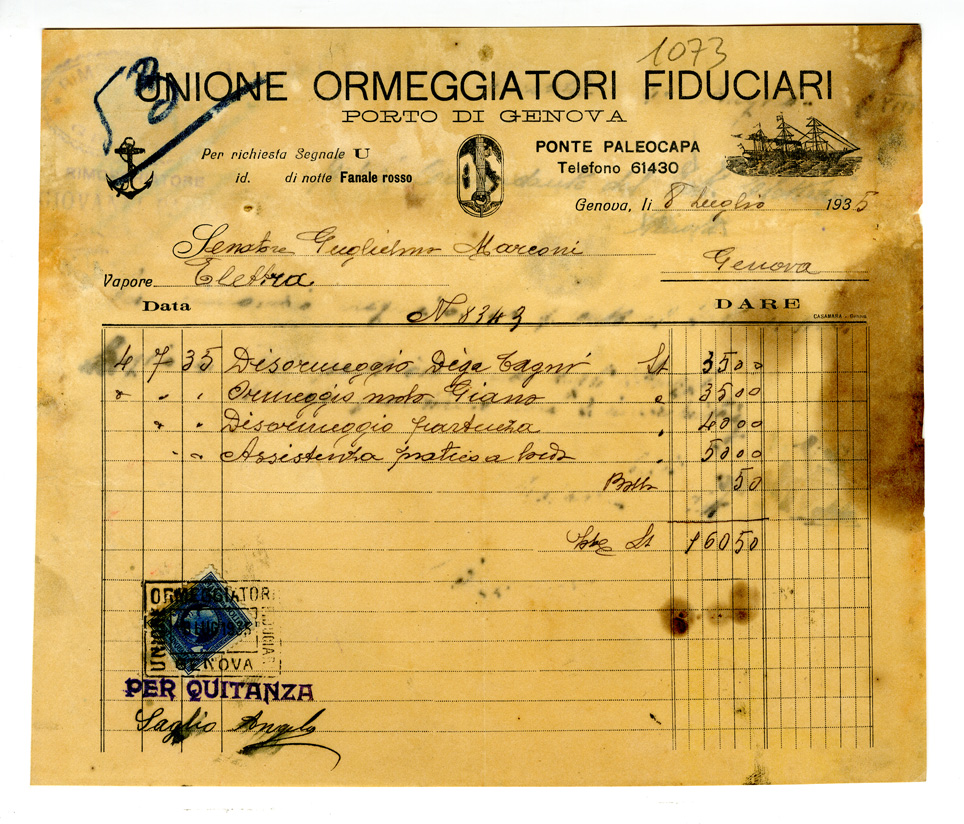 1073
UNIONE ORMEGGIATORI FIDUCIARI
PORTO DI GENOVA
Per richiesta Segnale U
id. di notte Fanale rosso
PONTE PALEOCAPA
Telefono 61430
Genova, li 8 Luglio 1935
Senatore Guglielmo Marconi
Genova
Vapore Elettra
Data
N 8343
DARE
CASAMARA - Genova
4 7 35 Disormeggio Diga Cagni Lt 35 00
" " " Ormeggio molo Giano " 35 00
" " Disormeggio partenza " 40 00
" " Assistenza pratico a bordo " 50 00
Bollo 50
Lt 160 50
UNIONE ORMEGGIATORI FIDUCIARI
GENOVA
PER QUITANZA
Saglio Angelo